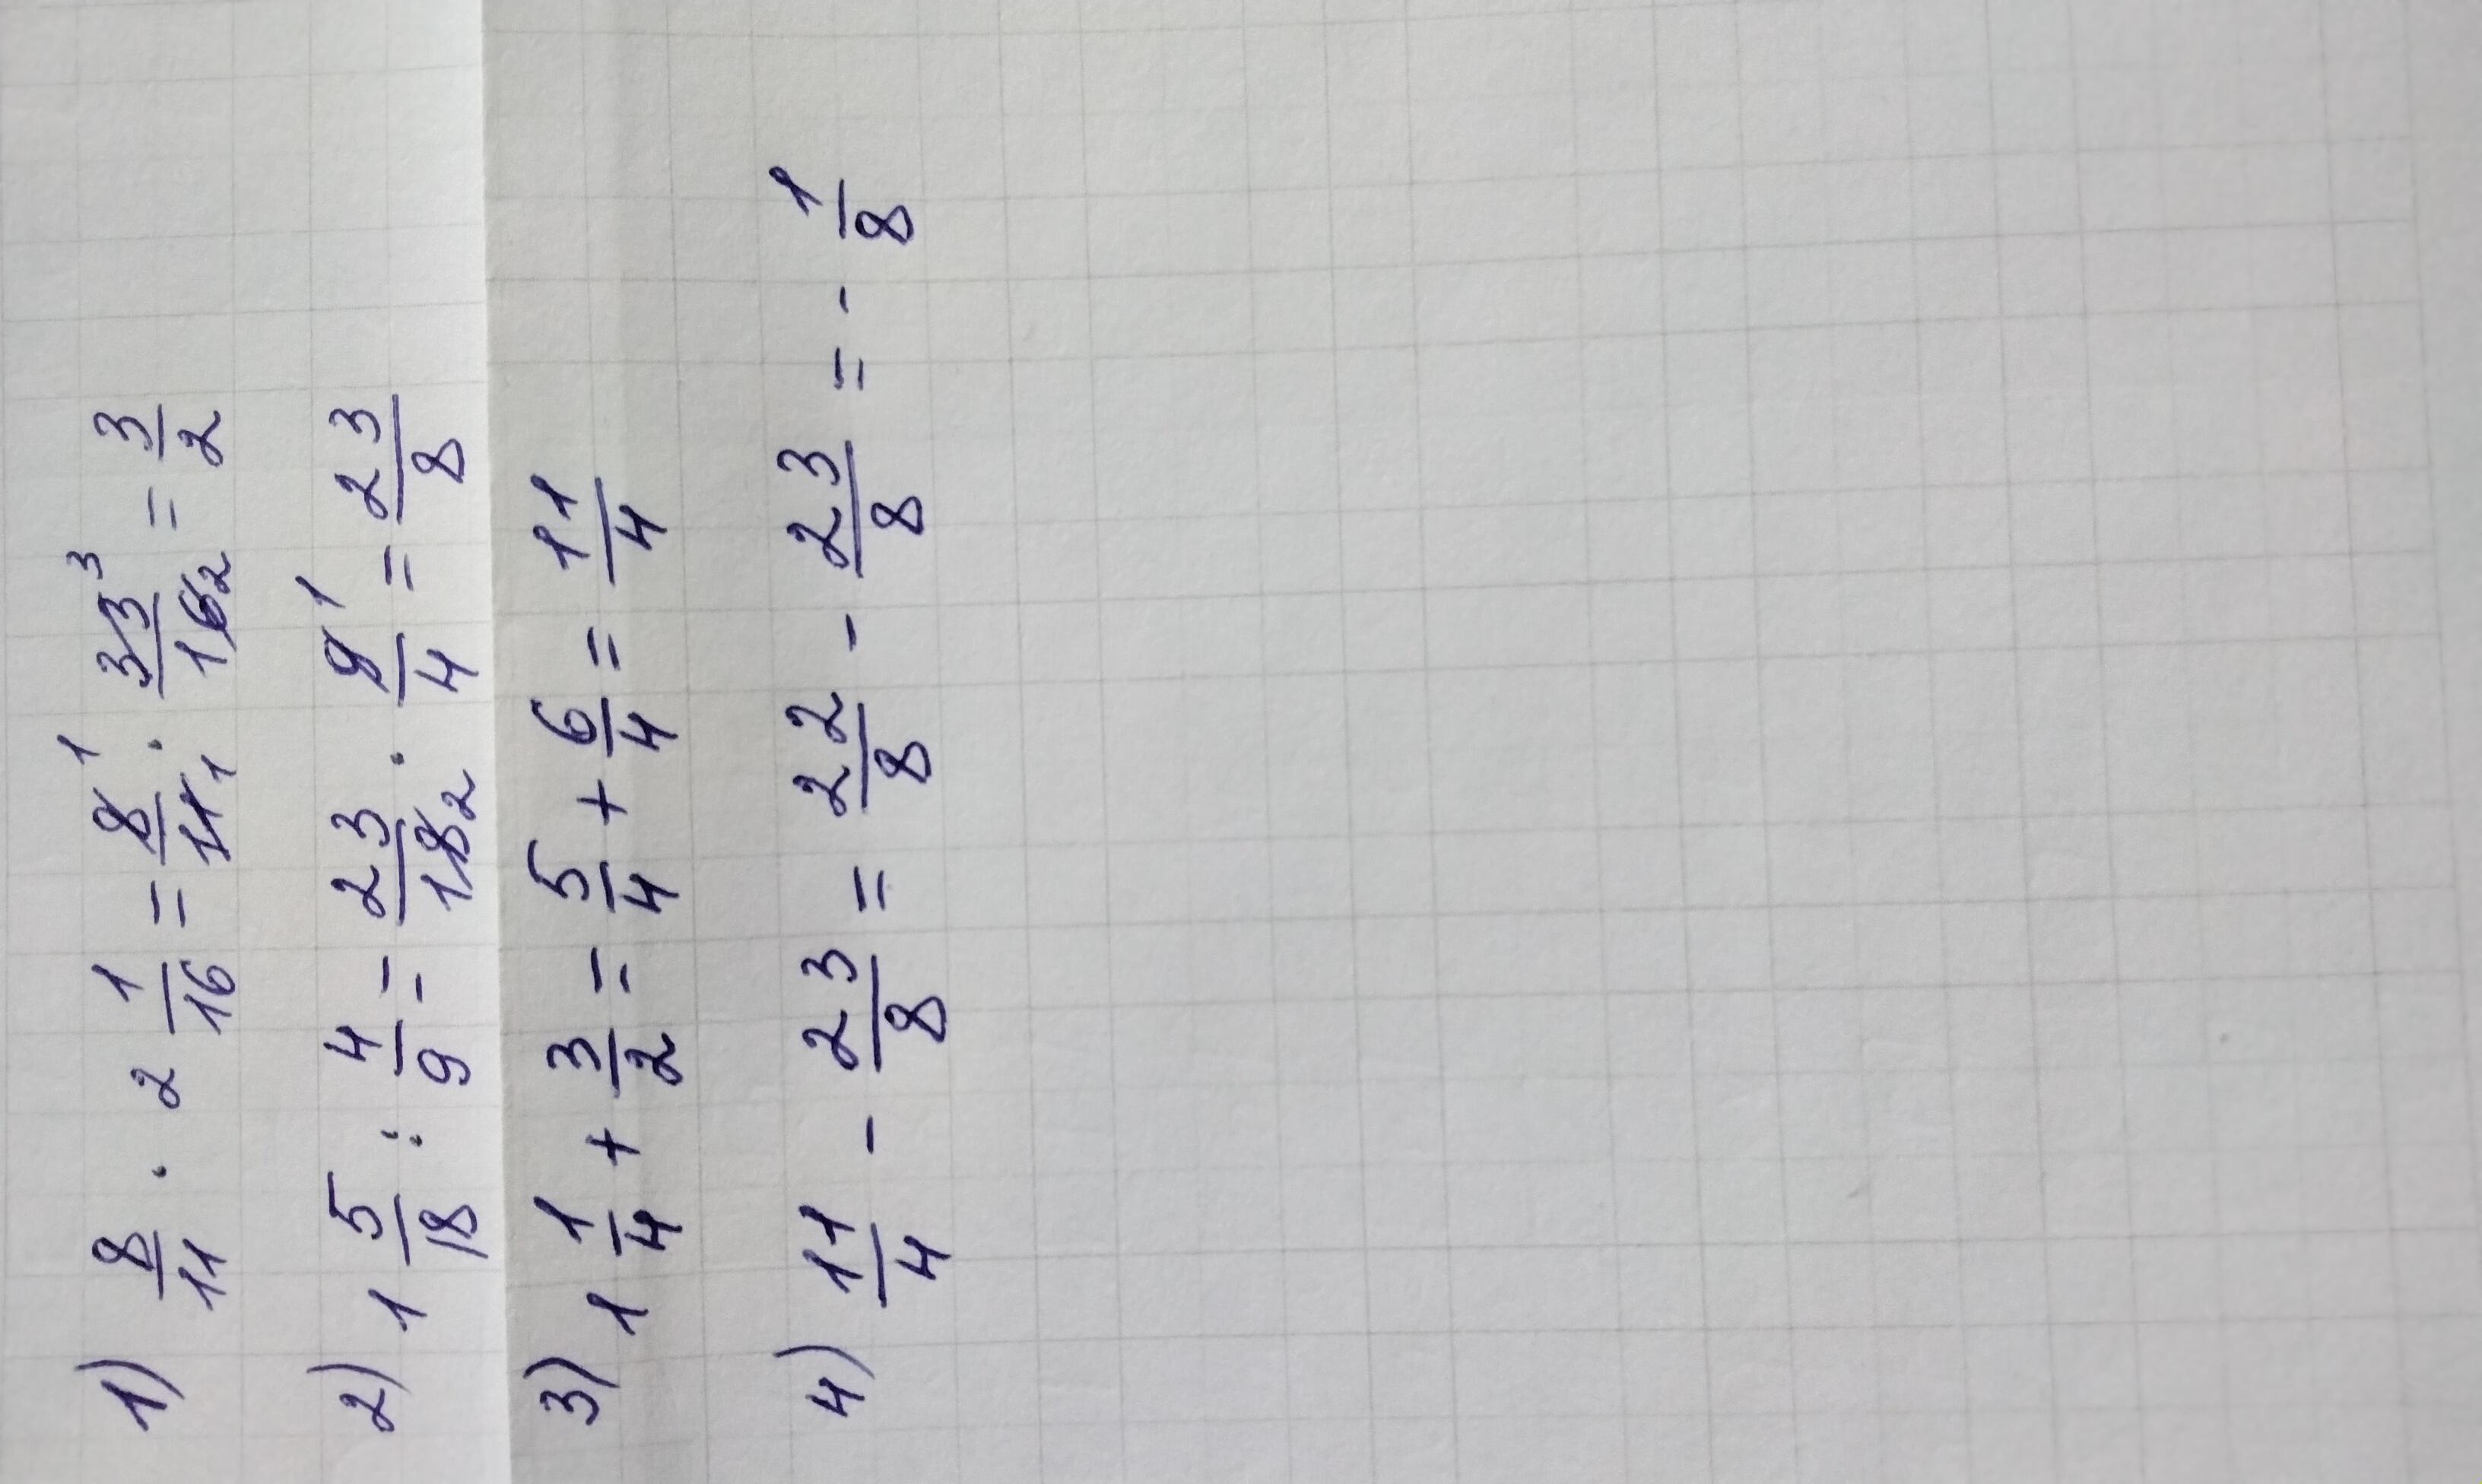 1) 8/11 · 2 1/16 = 8¹/11₁ · 33³/16₂ = 3/2
2) 1 5/18 : 4/9 = 23/18₂ · 9¹/4 = 23/8
3) 1 1/4 + 3/2 = 5/4 + 6/4 = 11/4
4) 11/4 - 23/8 = 22/8 - 23/8 = - 1/8